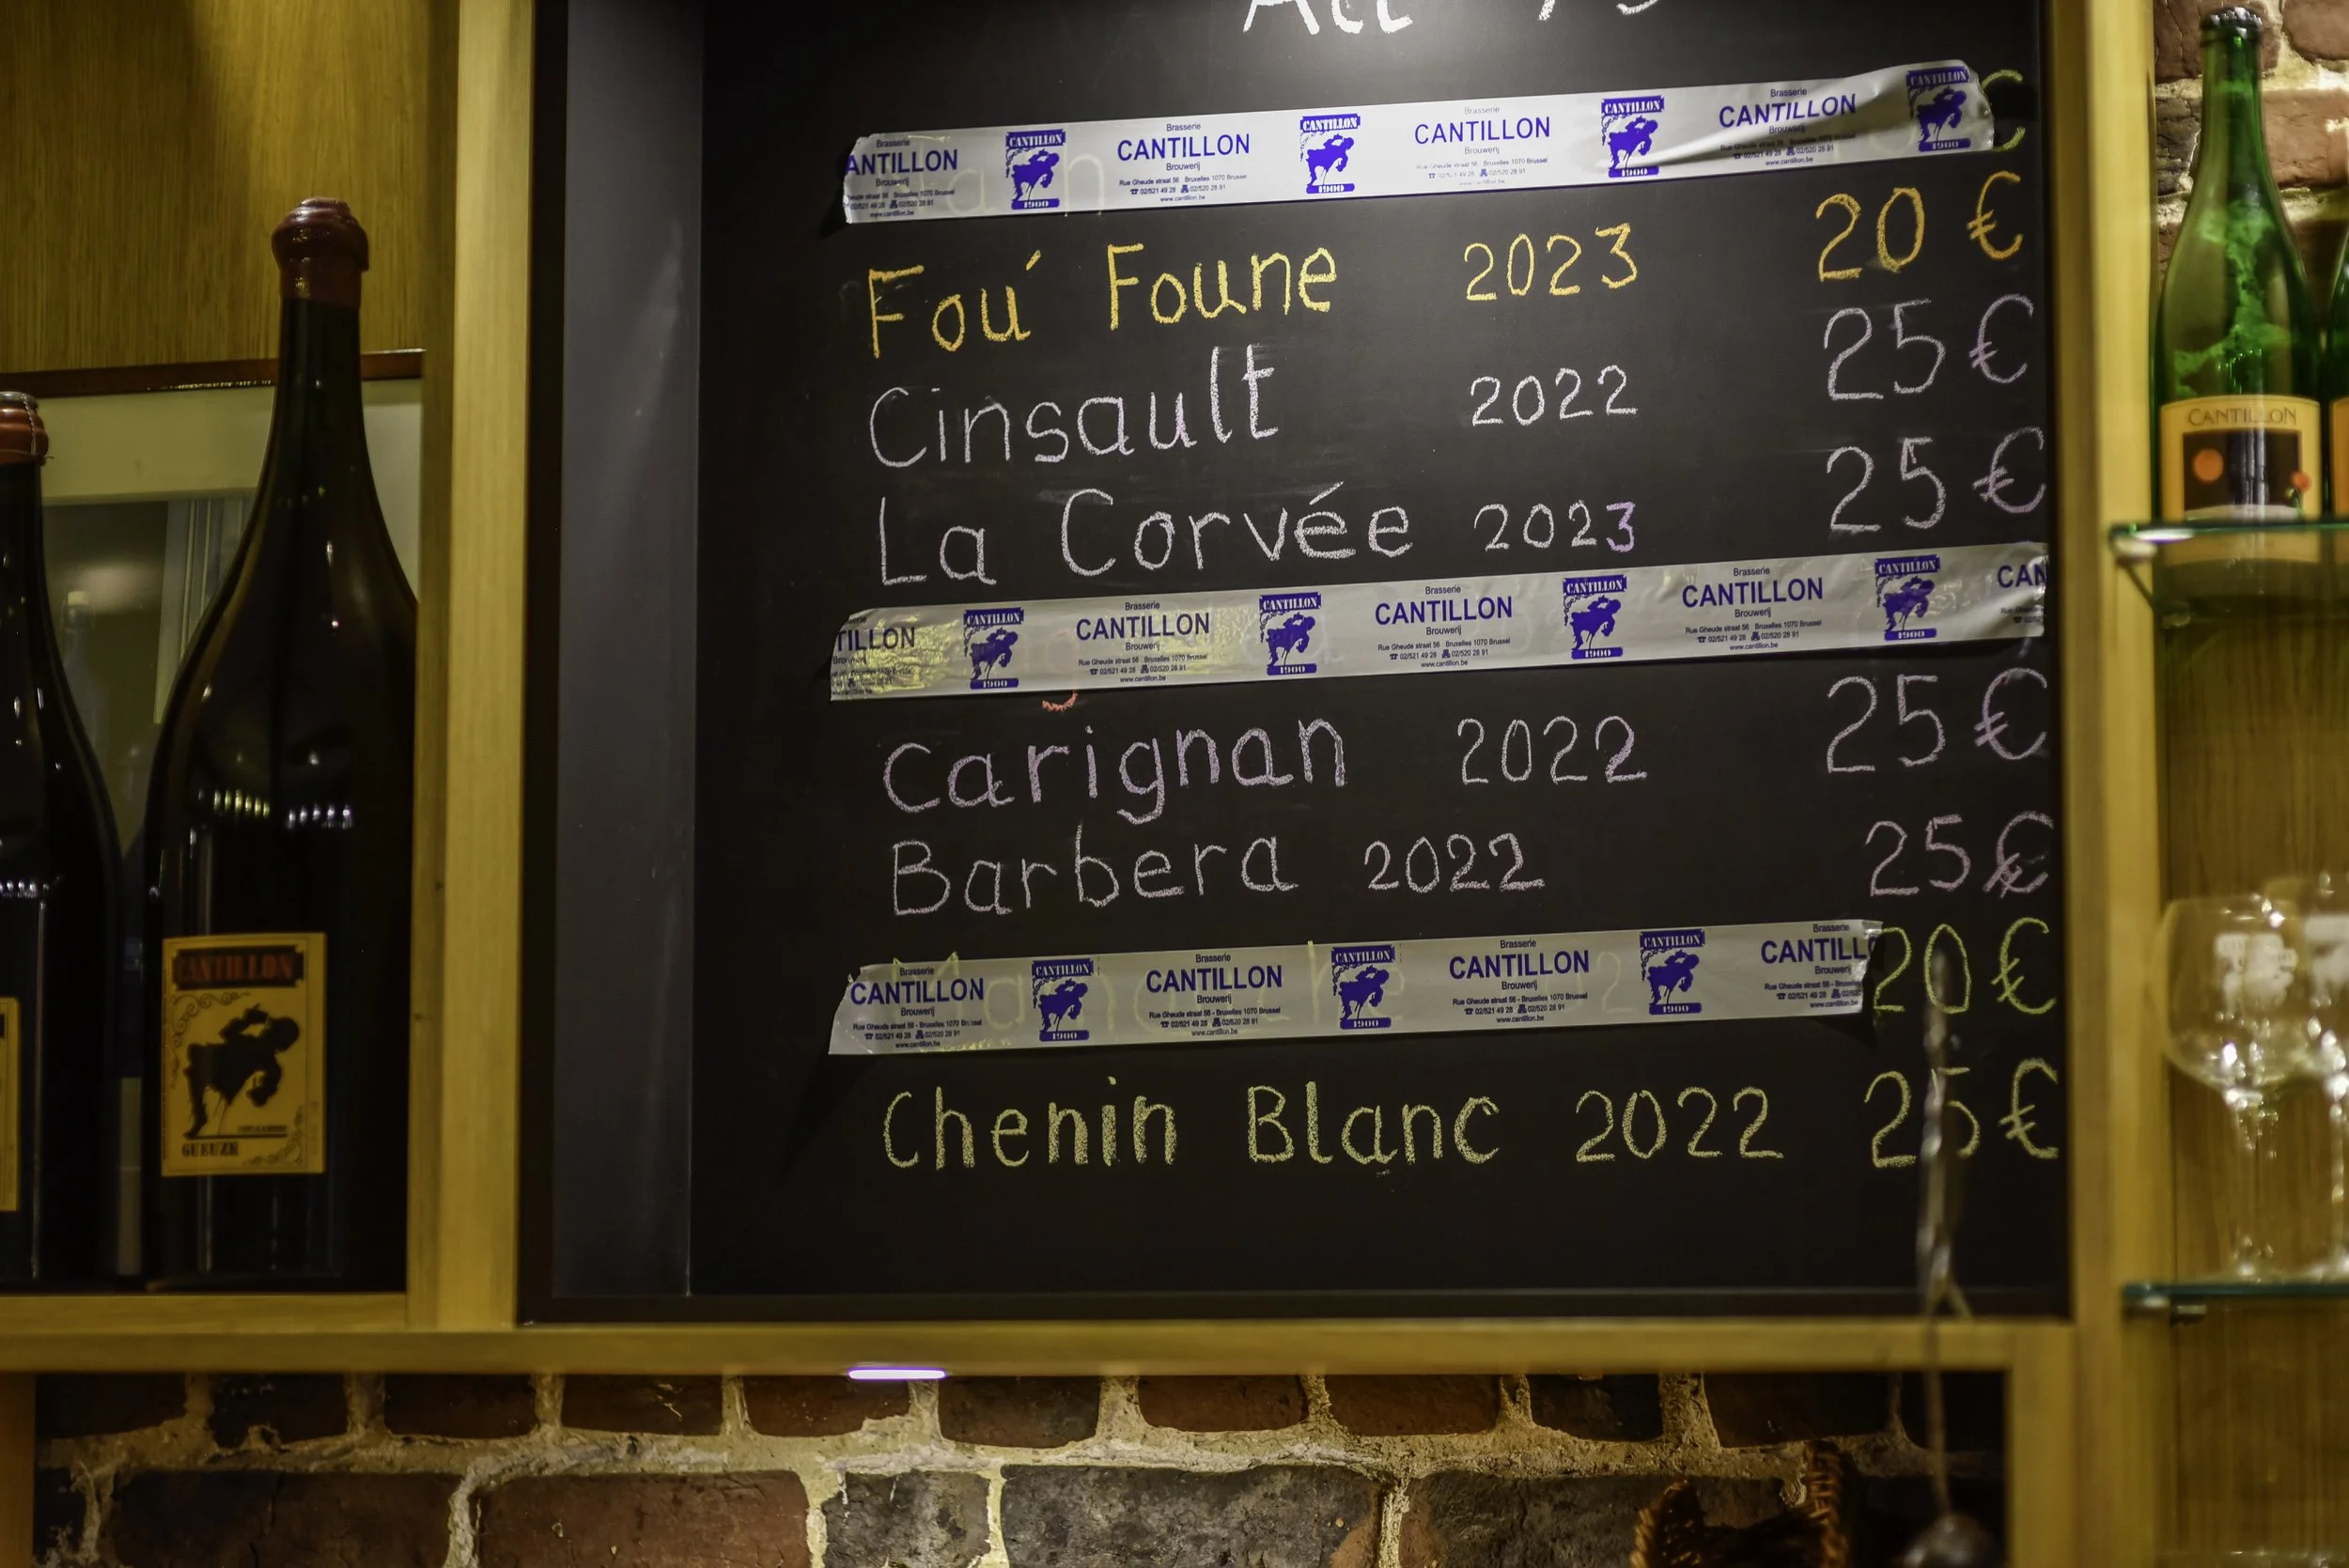 All 75
Brasserie CANTILLON Brouwerij CANTILLON 1900
Fou' Foune 2023 20 €
Cinsault 2022 25 €
La Corvée 2023 25 €
Brasserie CANTILLON Brouwerij Rue Gheude straat 56 Bruxelles 1070 Brussel 02/521 49 28 02/520 28 91 www.cantillon.be CANTILLON 1900
Carignan 2022 25 €
Barbera 2022 25 €
Brasserie CANTILLON Brouwerij Rue Gheude straat 56 - Bruxelles 1070 Brussel 02/521 49 28 02/520 28 91 www.cantillon.be CANTILLON 1900
20 €
Chenin Blanc 2022 25 €
CANTILLON
GUEUZE
CANTILLON